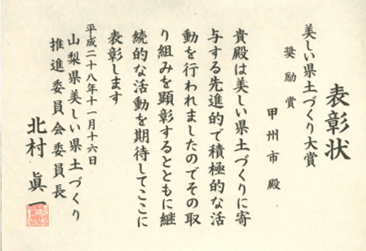 表彰状
美しい県土づくり大賞
奨励賞
甲州市殿
貴殿は美しい県土づくりに寄
与する先進的で積極的な活
動を行われましたのでその取
り組みを顕彰するとともに継
続的な活動を期待してここに
表彰します
平成二十八年十一月十六日
山梨県美しい県土づくり
推進委員会委員長
北村眞一